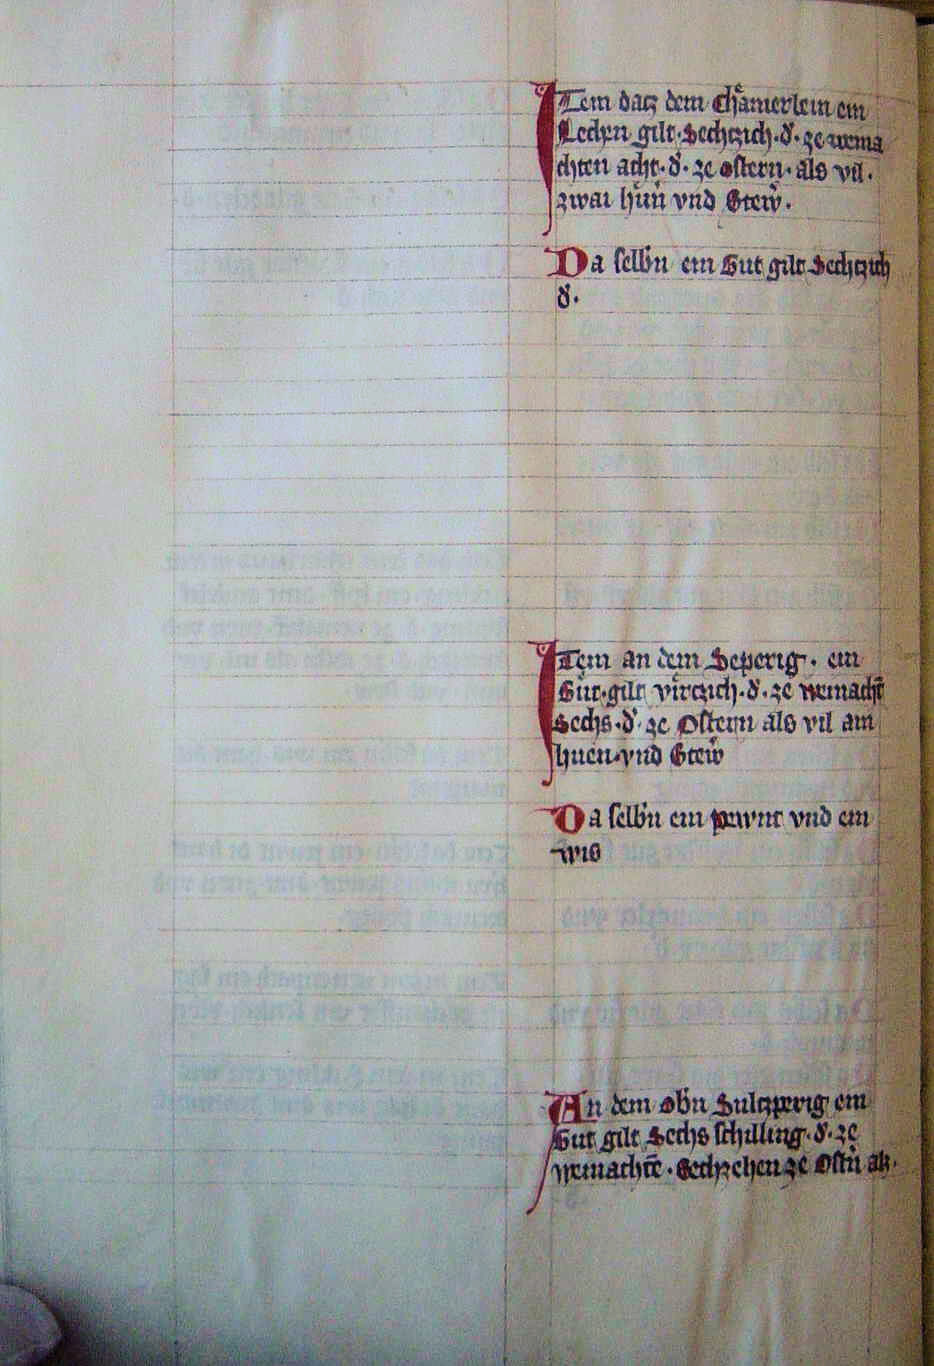 Item datz dem Chamerlein ein
Lechen gilt · Sechtzich · d · ze weina
chten acht · d · ze ostern · als vil ·
zwai hun vnd Stew ·
Da selbn ein Gut gilt Sechtzich
d ·
Item an dem Seperig · ein
Gut · gilt virtzich · d · ze weinacht
Sechs · d · ze Ostern als vil ain
huen · vnd Stew
Da selbn ein pewnt vnd ein
wis
An dem obn Sultzperig ein
Gut gilt Sechs schilling · d · ze
weinachte · Sechzehen ze Ostn als ·